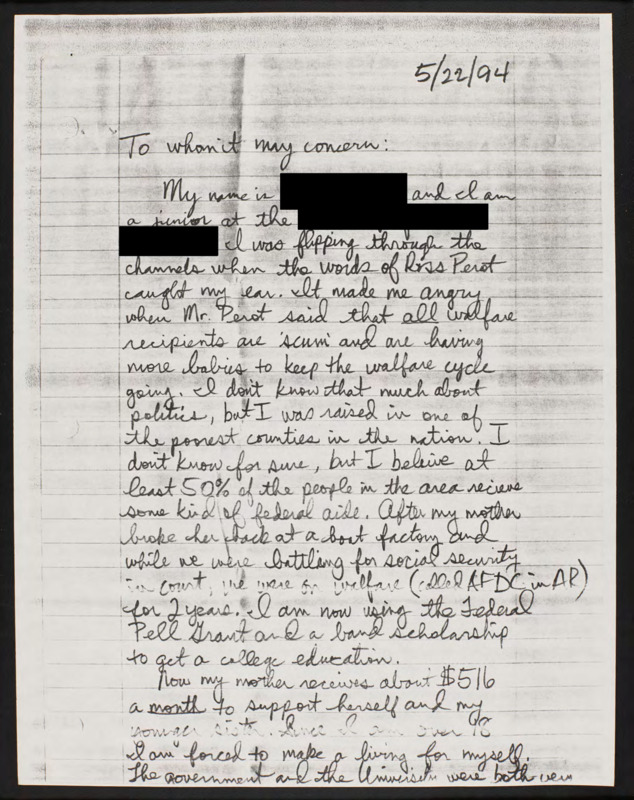 5/22/94
To whom it may concern:
My name is and I am
a junior at the
I was flipping through the
channels when the words of Ross Perot
caught my ear. It made me angry
when Mr. Perot said that all welfare
recipients are 'scum' and are having
more babies to keep the welfare cycle
going. I don't know that much about
politics, but I was raised in one of
the poorest counties in the nation. I
don't know for sure, but I beleive at
least 50% of the people in the area recieve
some kind of federal aide. After my mother
broke her back at a boat factory and
while we were battling for social security
in court, we were on welfare (called AFDC in AR)
for 2 years. I am now using the Federal
Pell Grant and a band scholarship
to get a college education.
Now my mother receives about $516
a month to support herself and my
younger sister. Since I am over 18
I am forced to make a living for myself.
The government and the University were both very